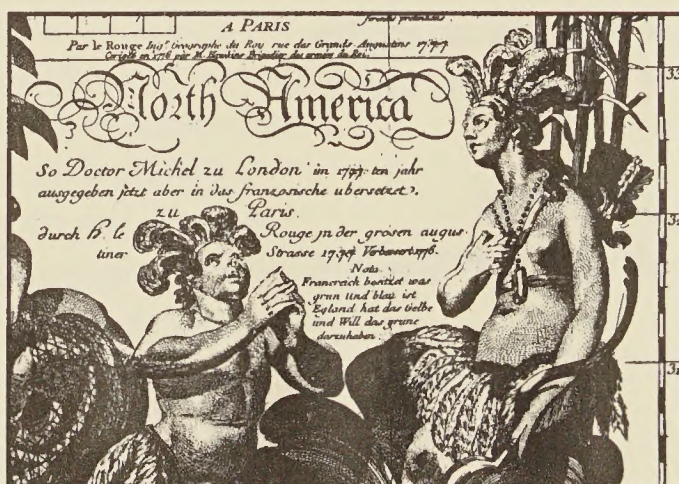 A PARIS
Par le Rouge Ing.r Geographe du Roy rue des Grands Augustins
Corigée en 1776 par M. Brigadier des armées du Roi.
North America
So Doctor Michel zu London im ten jahr
ausgegeben jetzt aber in das französische ubersetzet
zu Paris.
durch H. le Rouge jn der grosen augus
tiner Strasse Verbessert 1776.
Nota
Francreich besitzet was
grun und blau ist
Egland hat das Gelbe
und Will das grune
darzuhaben
33
32
31